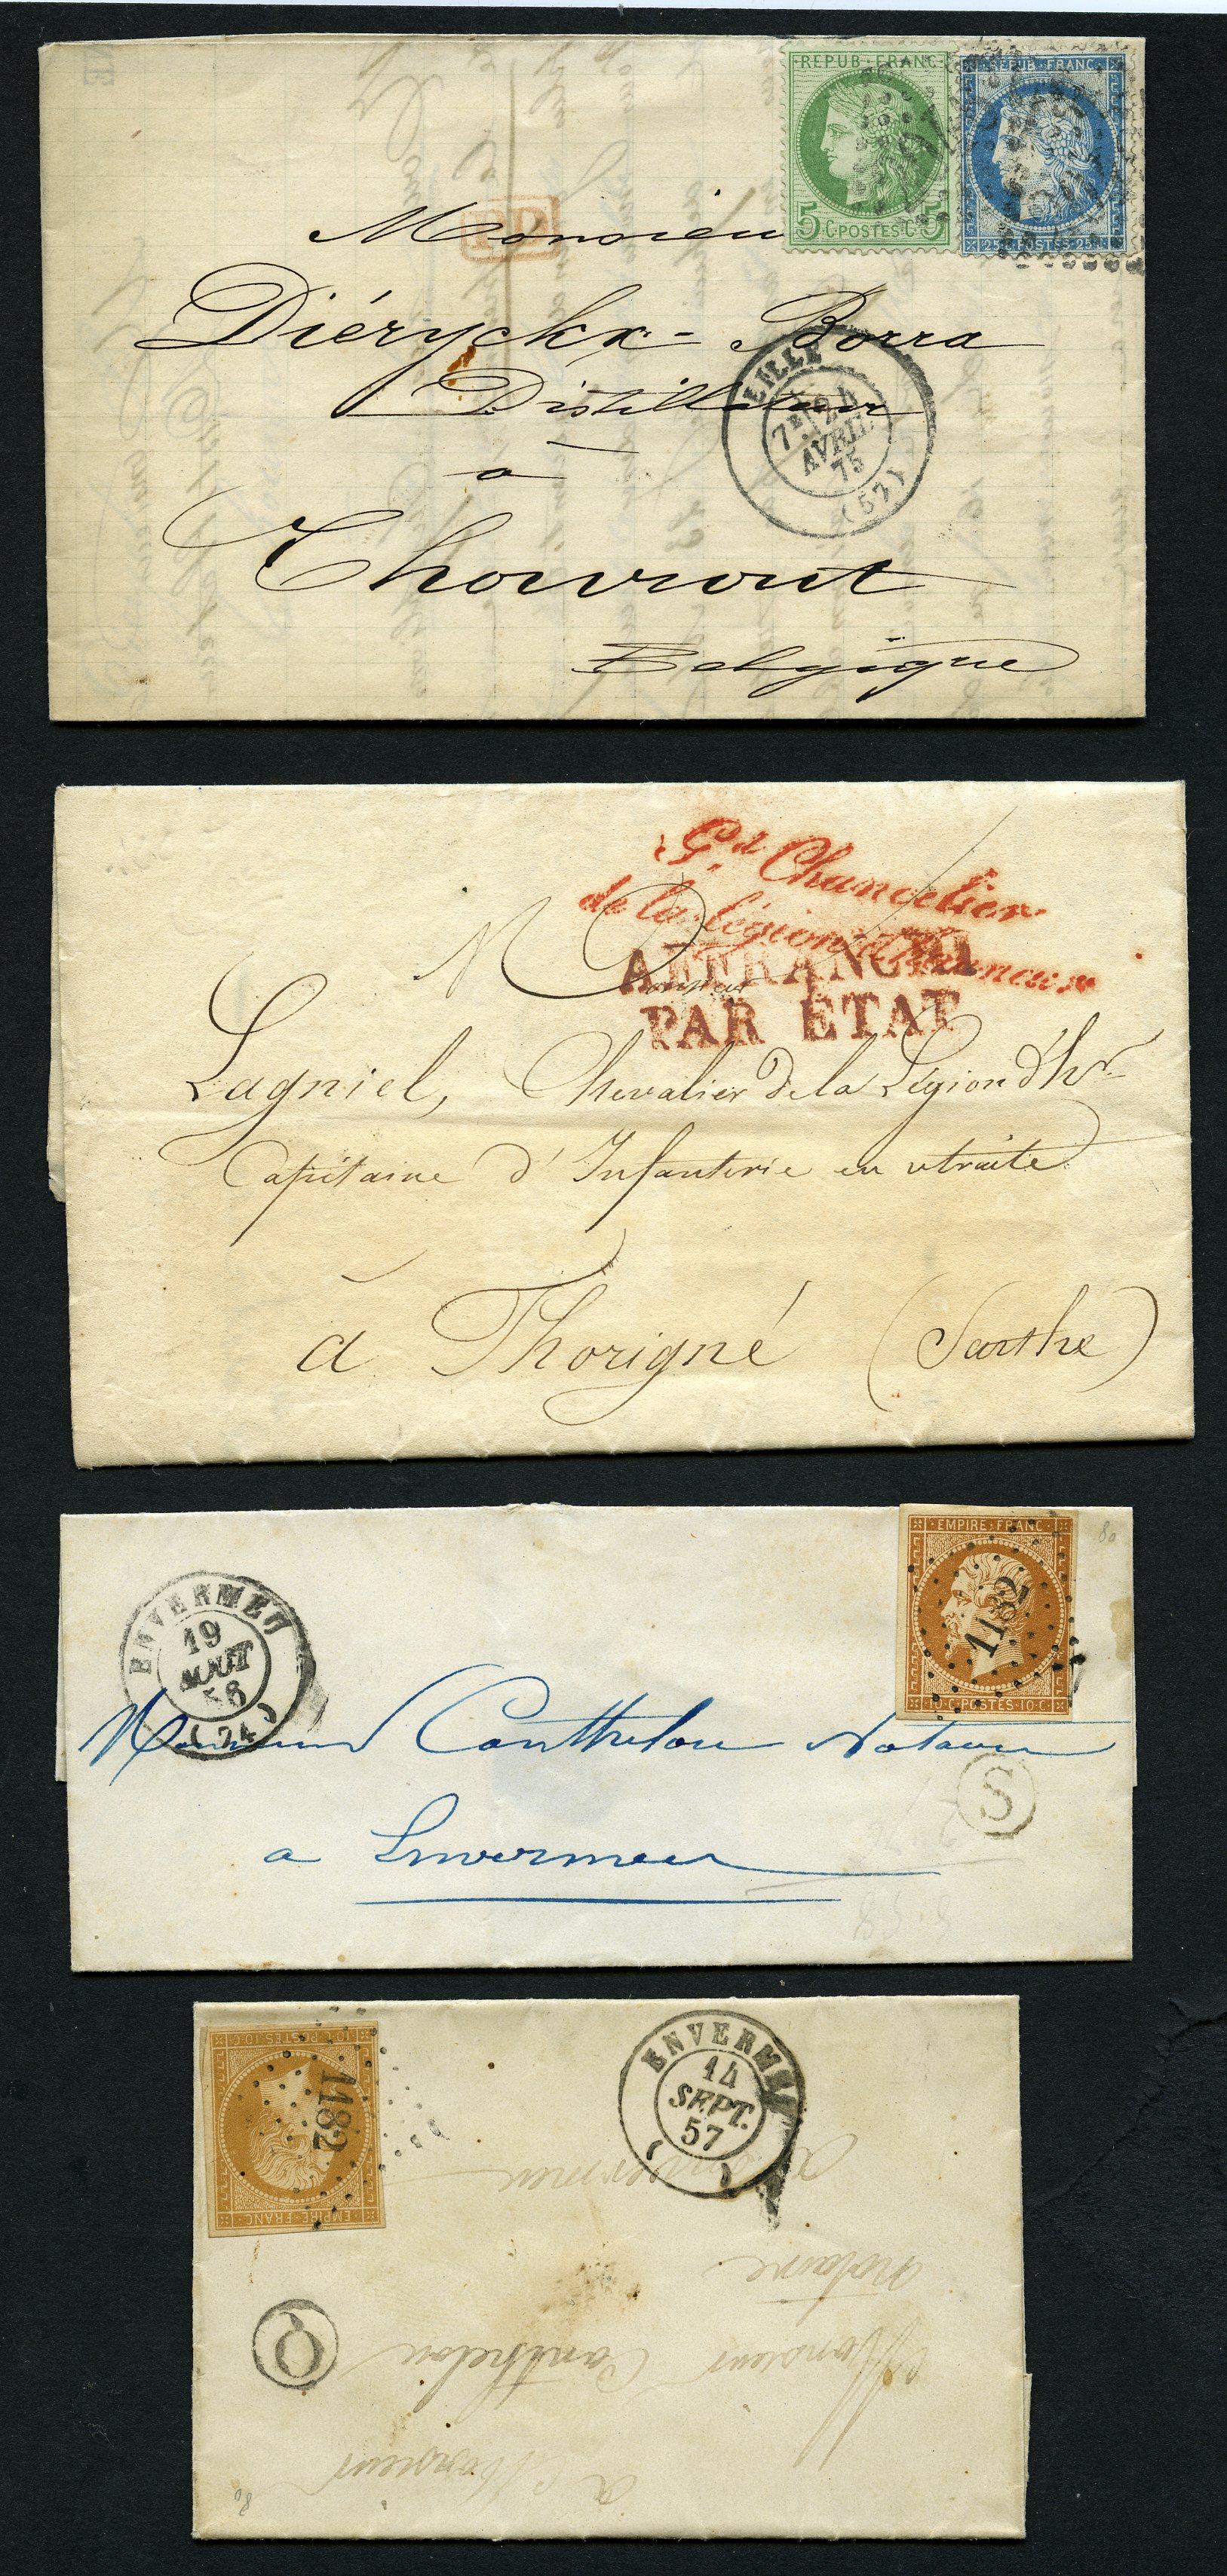 REPUB·FRANC
5 C·POSTES·C· 5
REPUB·FRANC·
25 C·POSTES·25 C
P.D
Monsieur
Diéryckx-Borra
Distillateur
à
Thourout
Belgique
LILLE
7E 24
AVRIL
75
(57)
Gd. Chancelier
de la légion d'honneur
AFFRANCHI
PAR ETAT
Monsieur
Lagniel, Chevalier de la Légion d'hr
Capitaine d'Infanterie en retraite
à Thorigné (Sarthe)
EMPIRE·FRANC·
10·C·POSTES·10·C·
1182
80
ENVERMEU
19
AOUT
58
(74)
Monsieur Canthelou Notaire
a Envermeu
S
10·C·POSTES·10·C·
EMPIRE·FRANC·
1182
ENVERMEU
14
SEPT.
57
a Envermeu
Notaire
Monsieur Canthelou
Q
a Monsieur
80